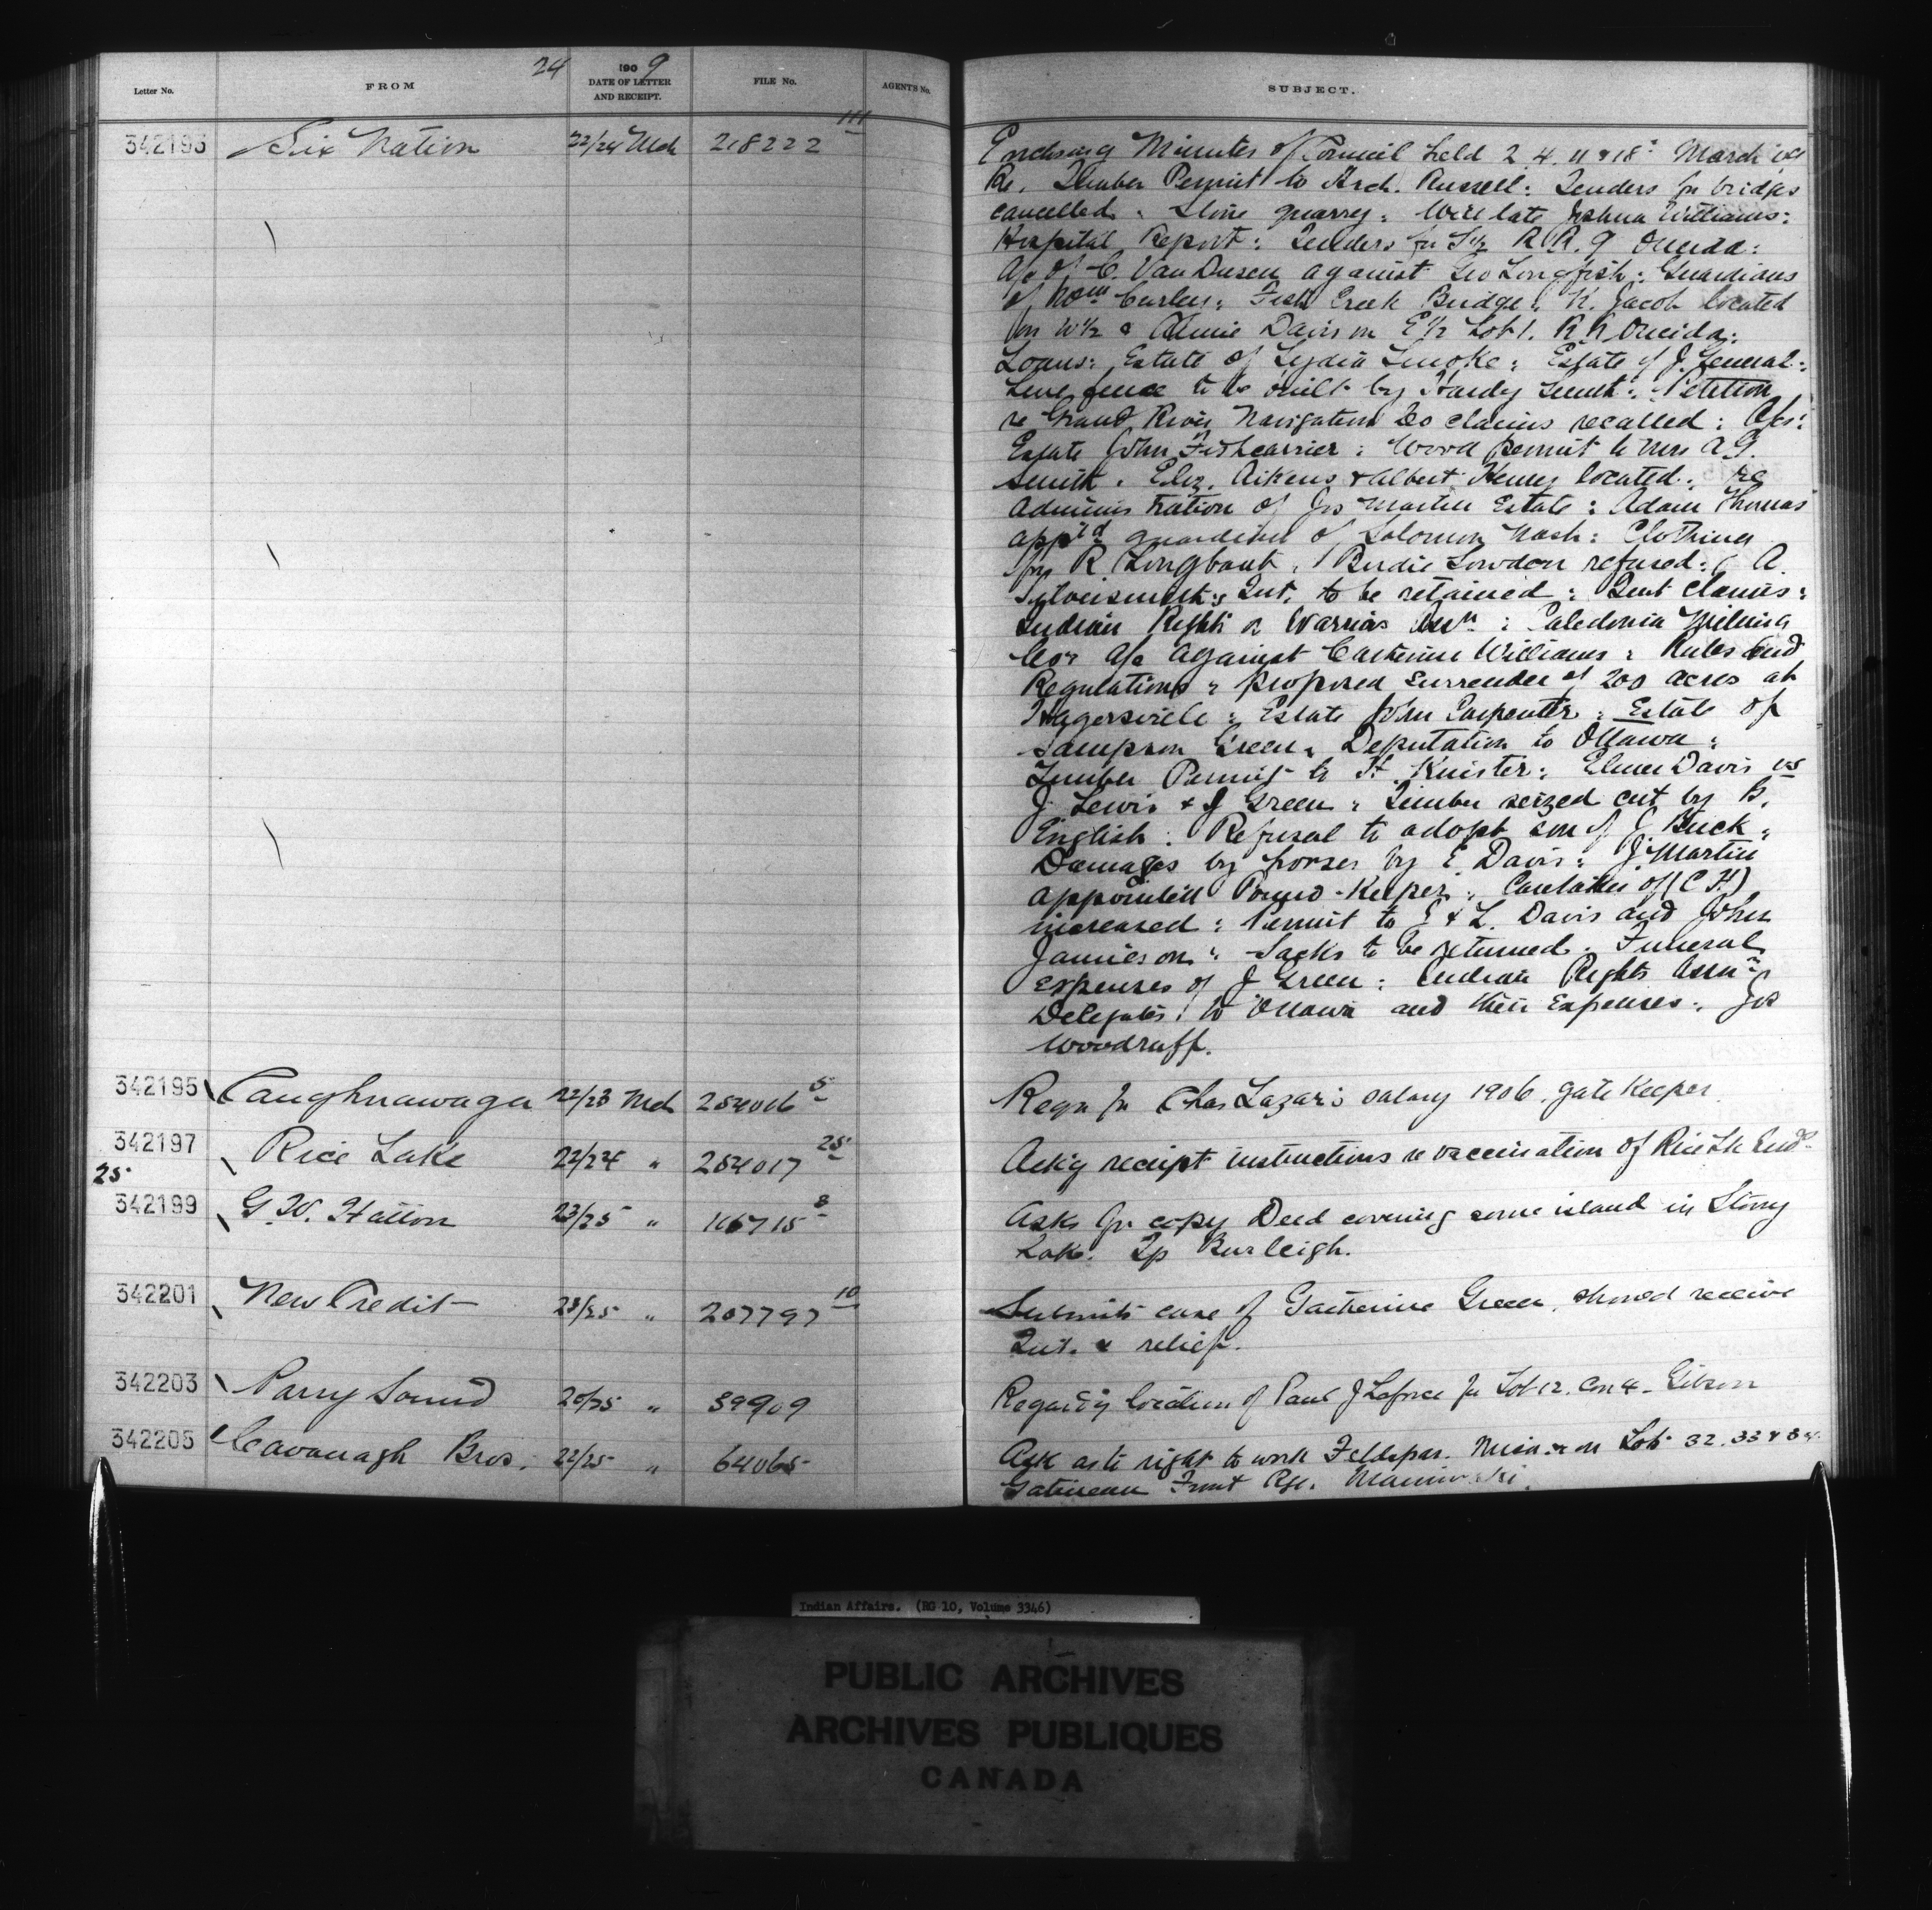 24 1909
Letter No. FROM DATE OF LETTER AND RECEIPT. FILE No. AGENT'S No. SUBJECT.
342193 Six Nation 22/24 Mch 218222 111
Enclosing Minutes of Council held 2 4. 11 & 18th March
Re. Timber Permit to Arch. Russell: Tenders for bridges
cancelled. Stone quarry: Will late Joshua Williams:
Hospital Report: Tenders for R.R. 9 Oneida:
A/c of C. Van Dusen against Geo Longfish: Guardians
of Curley: Fish Creek Bridge: K. Jacob located
on W½ & Annie Davis on E½ Lot 1. R Oneida:
Loans: Estate of Lydia Smoke: Estate of J. General:
Line fence to be built by Hardy Smith: Petition
re Grand River Navigation Co claims recalled: A/cs:
Estate John Fishcarrier: Wood permit to Mrs A.G.
Smith. Eliz. Aikens & Albert Henry located: re
Administration of Jos Martin Estate: Adam Thomas
app'td guardian of Solomon Nash: Clothing
for R. Longboat. Birdie Lowdon refused: A.
Silversmith's Int. to be retained: Rent claims:
Indian Rights or Warriors Assn: Caledonia Milling
Co's A/c against Catherine Williams: Rules and
Regulations: Proposed surrender of 200 acres at
Hagersville: Estate John Carpenter: Estate of
Sampson Green: Deputation to Ottawa:
Timber Permit to H. Knister: Elmer Davis vs
J. Lewis & J Green: Timber seized cut by B.
English: Refusal to adopt son of J. Buck:
Damages by horses by E. Davis: J. Martin
appointed Pound-Keeper: Caretaker of (C.H.)
increased: Permit to E & L. Davis and John
Jamieson: Sacks to be returned. Funeral
expenses of J Green: Indian Rights Assn's
Delegates to Ottawa and their Expenses: Jos
Woodruff.
342195 Caughnawaga 22/23 Mch 254016 5
Reqn for Chas Lazar's salary 1906. gate Keeper.
342197 Rice Lake 22/24 " 254017 25
Ack'g receipt instructions re vaccination of Rice Lk Inds.
25
342199 G.W. Hatton 23/25 " 116715 8
Asks for copy Deed covering some island in Stony
Lake. Tp Burleigh.
342201 New Credit 23/25 " 207797 10
Submits case of Catherine Green, should receive
Int. & relief.
342203 Parry Sound 20/25 " 39909
Regard'g location of Paul J Laforce for Lot 12. Con 4. Gibson
342205 Cavanagh Bros. 22/25 " 64065
Ask as to right to work Feldspar. on Lots 32. 33 & 34
Gatineau Front Rge. Maniwaki.
Indian Affairs. (RG 10, Volume 3346)
PUBLIC ARCHIVES
ARCHIVES PUBLIQUES
CANADA